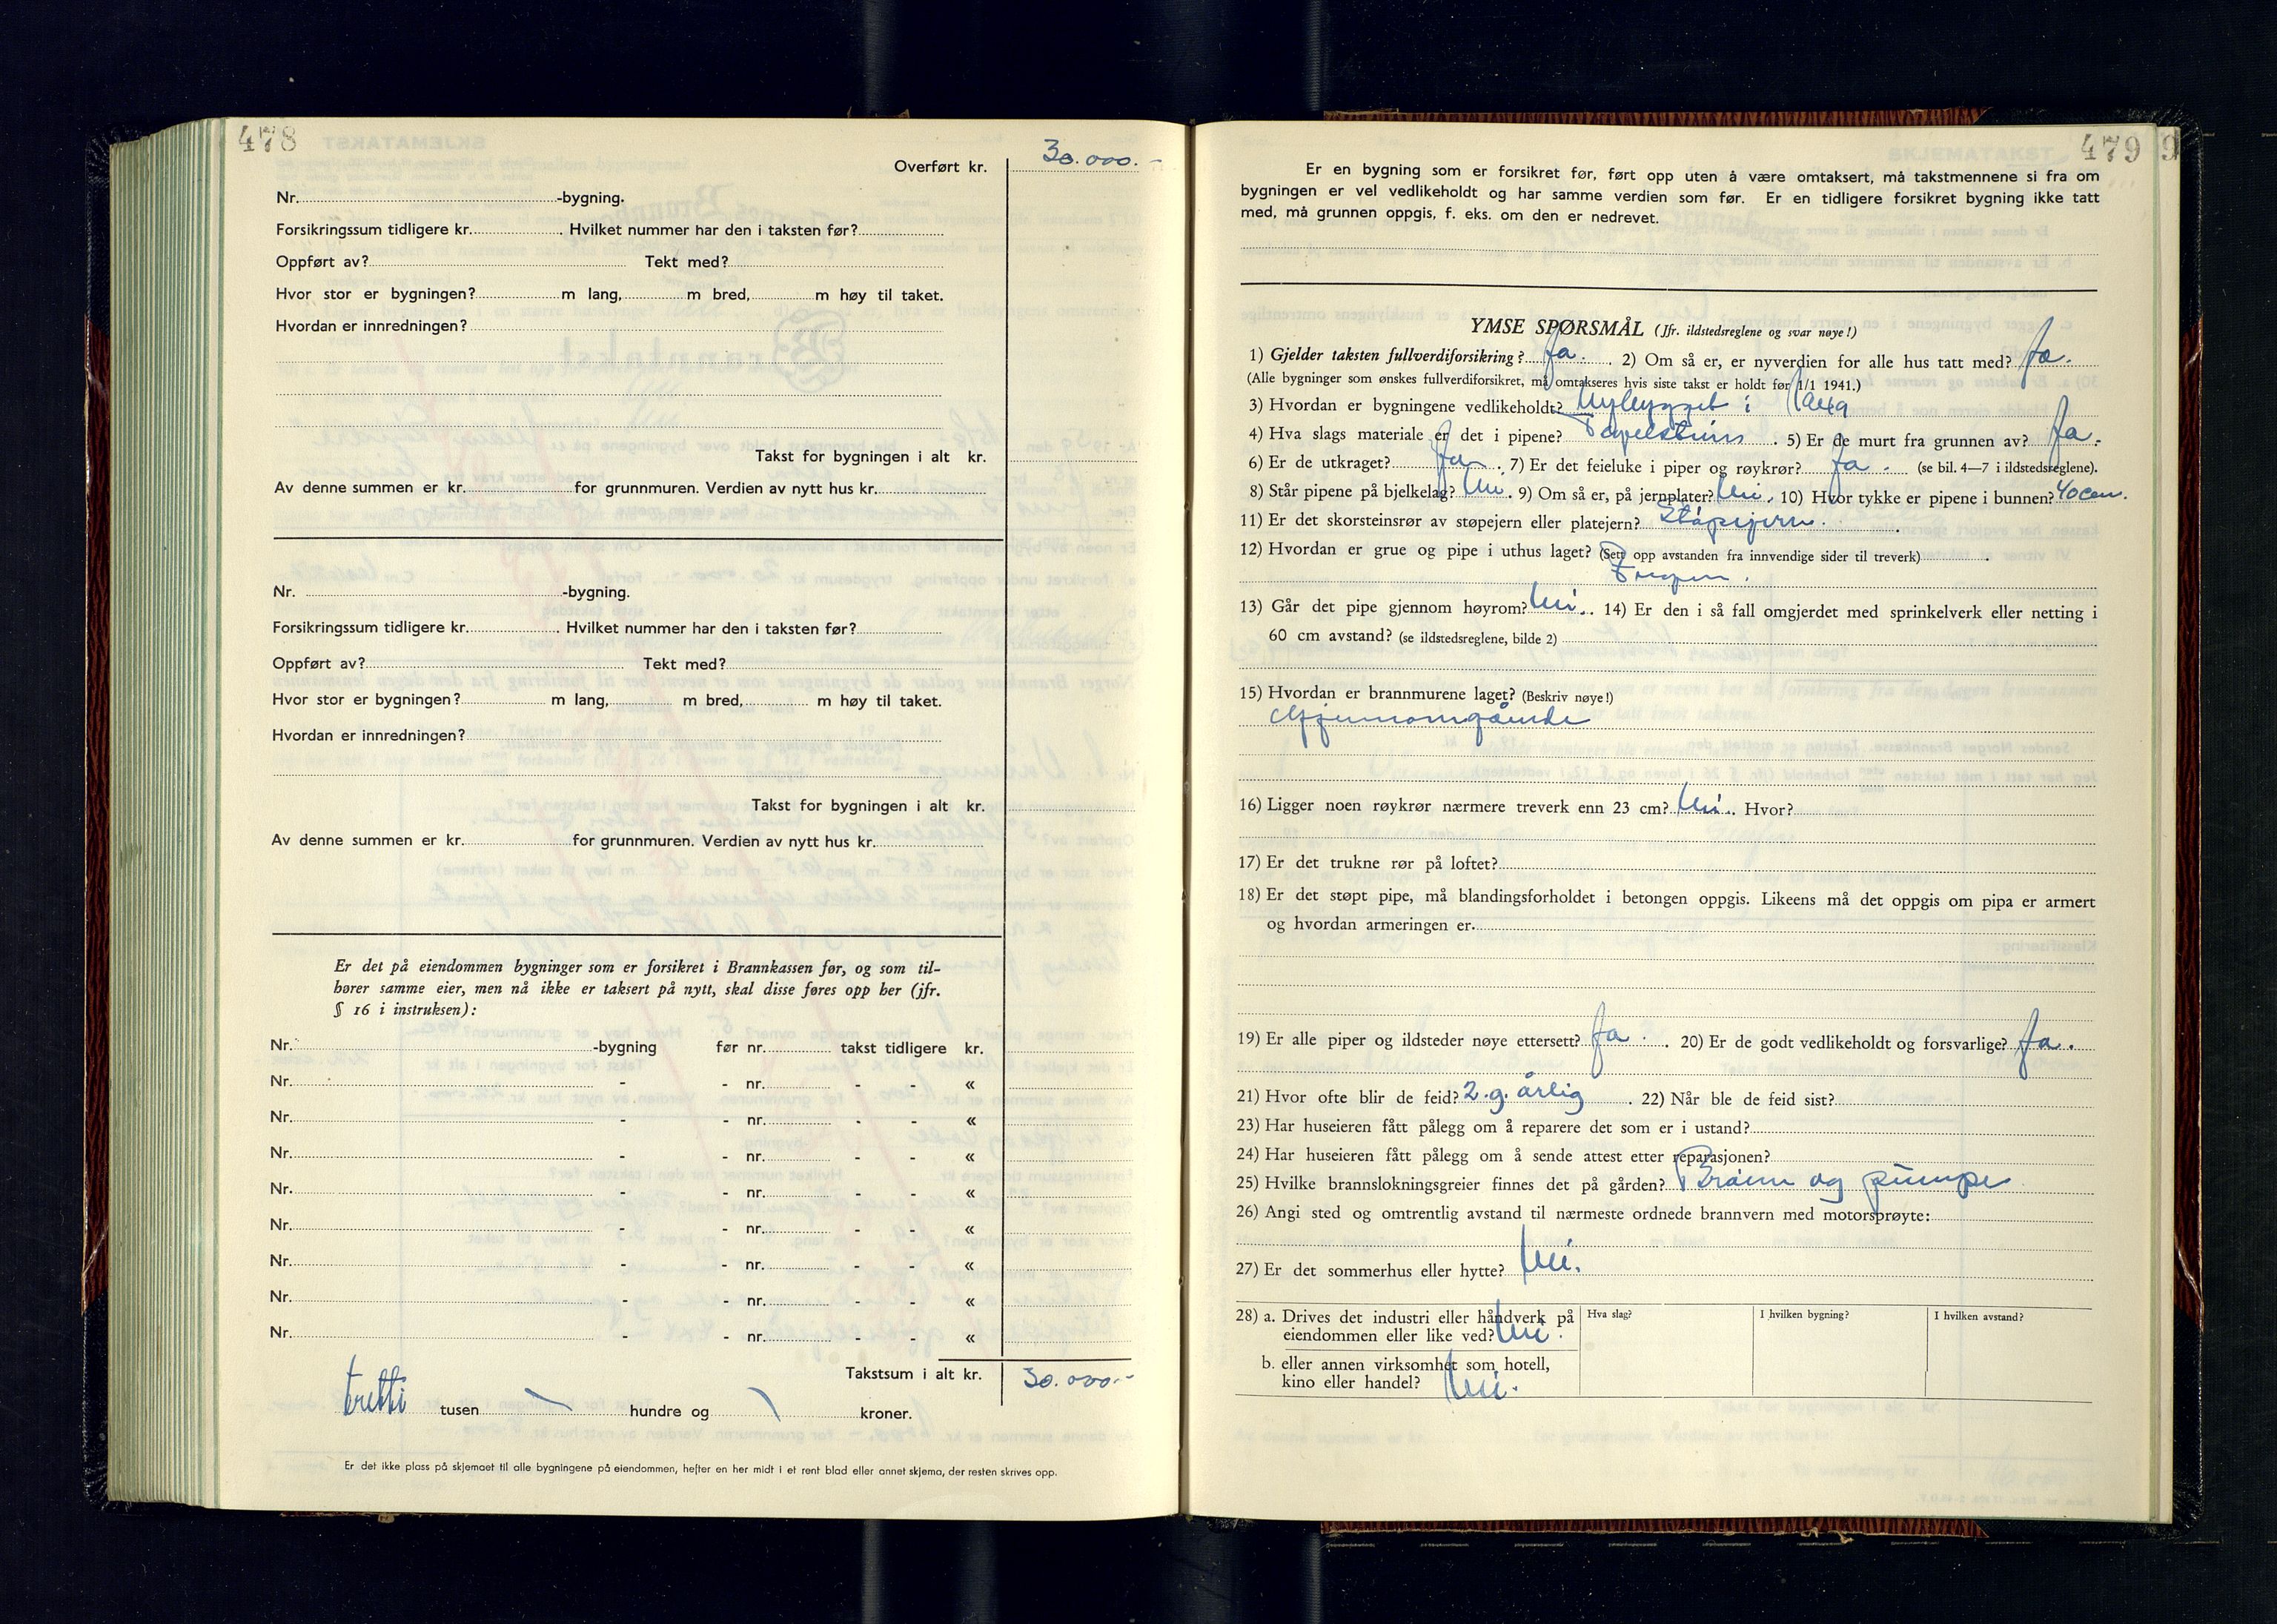 478
Overført kr. 30.000.-
Nr. -bygning.
Forsikringssum tidligere kr. . Hvilket nummer har den i taksten før?
Oppført av? Tekt med?
Hvor stor er bygningen? m lang, m bred, m høy til taket.
Hvordan er innredningen?
Takst for bygningen i alt kr.
Av denne summen er kr. for grunnmuren. Verdien av nytt hus kr.
Nr. -bygning.
Forsikringssum tidligere kr. . Hvilket nummer har den i taksten før?
Oppført av? Tekt med?
Hvor stor er bygningen? m lang, m bred, m høy til taket.
Hvordan er innredningen?
Takst for bygningen i alt kr.
Av denne summen er kr. for grunnmuren. Verdien av nytt hus kr.
Er det på eiendommen bygninger som er forsikret i Brannkassen før, og som til-
hører samme eier, men nå ikke er taksert på nytt, skal disse føres opp her (jfr.
§ 16 i instruksen):
Nr. -bygning før nr. takst tidligere kr.
Nr. - - nr. - - «
Nr. - - nr. - - «
Nr. - - nr. - - «
Nr. - - nr. - - «
Nr. - - nr. - - «
Nr. - - nr. - - «
Nr. - - nr. - - «
Nr. - - nr. - - «
Takstsum i alt kr. 30.000.-
tretti tusen hundre og kroner.
Er det ikke plass på skjemaet til alle bygningene på eiendommen, hefter en her midt i et rent blad eller annet skjema, der resten skrives opp.
479 9
Er en bygning som er forsikret før, ført opp uten å være omtaksert, må takstmennene si fra om
bygningen er vel vedlikeholdt og har samme verdien som før. Er en tidligere forsikret bygning ikke tatt
med, må grunnen oppgis, f. eks. om den er nedrevet.
YMSE SPØRSMÅL (Jfr. ildstedsreglene og svar nøye!)
1) Gjelder taksten fullverdiforsikring? Ja. . 2) Om så er, er nyverdien for alle hus tatt med? Ja.
(Alle bygninger som ønskes fullverdiforsikret, må omtakseres hvis siste takst er holdt før 1/1 1941.)
3) Hvordan er bygningene vedlikeholdt? Nybygget i
4) Hva slags materiale er det i pipene? . 5) Er de murt fra grunnen av? Ja.
6) Er de utkraget? Ja . 7) Er det feieluke i piper og røykrør? Ja. (se bil. 4—7 i ildstedsreglene).
8) Står pipene på bjelkelag? Nei . 9) Om så er, på jernplater? Nei . 10) Hvor tykke er pipene i bunnen? 40 cm.
11) Er det skorsteinsrør av støpejern eller platejern? Støpejern. .
12) Hvordan er grue og pipe i uthus laget? (Sett opp avstanden fra innvendige sider til treverk) .
Ingen.
13) Går det pipe gjennom høyrom? Nei. . 14) Er den i så fall omgjerdet med sprinkelverk eller netting i
60 cm avstand? (se ildstedsreglene, bilde 2)
15) Hvordan er brannmurene laget? (Beskriv nøye!)
Gjennomgående
16) Ligger noen røykrør nærmere treverk enn 23 cm? Nei. Hvor?
17) Er det trukne rør på loftet?
18) Er det støpt pipe, må blandingsforholdet i betongen oppgis. Likeens må det oppgis om pipa er armert
og hvordan armeringen er.
19) Er alle piper og ildsteder nøye ettersett? Ja. . 20) Er de godt vedlikeholdt og forsvarlige? Ja.
21) Hvor ofte blir de feid? 2.g. årlig . 22) Når ble de feid sist?
23) Har huseieren fått pålegg om å reparere det som er i ustand?
24) Har huseieren fått pålegg om å sende attest etter reparasjonen?
25) Hvilke brannslokningsgreier finnes det på gården? og pumpe
26) Angi sted og omtrentlig avstand til nærmeste ordnede brannvern med motorsprøyte:
27) Er det sommerhus eller hytte? Nei.
28) a. Drives det industri eller håndverk på Hva slag? I hvilken bygning? I hvilken avstand?
eiendommen eller like ved? Nei.
b. eller annen virksomhet som hotell,
kino eller handel? Nei.